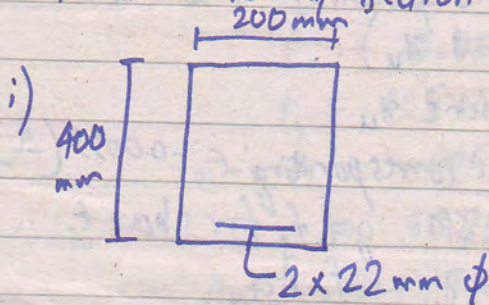 200mm
i)
400
mm
2 x 22 mm ϕ